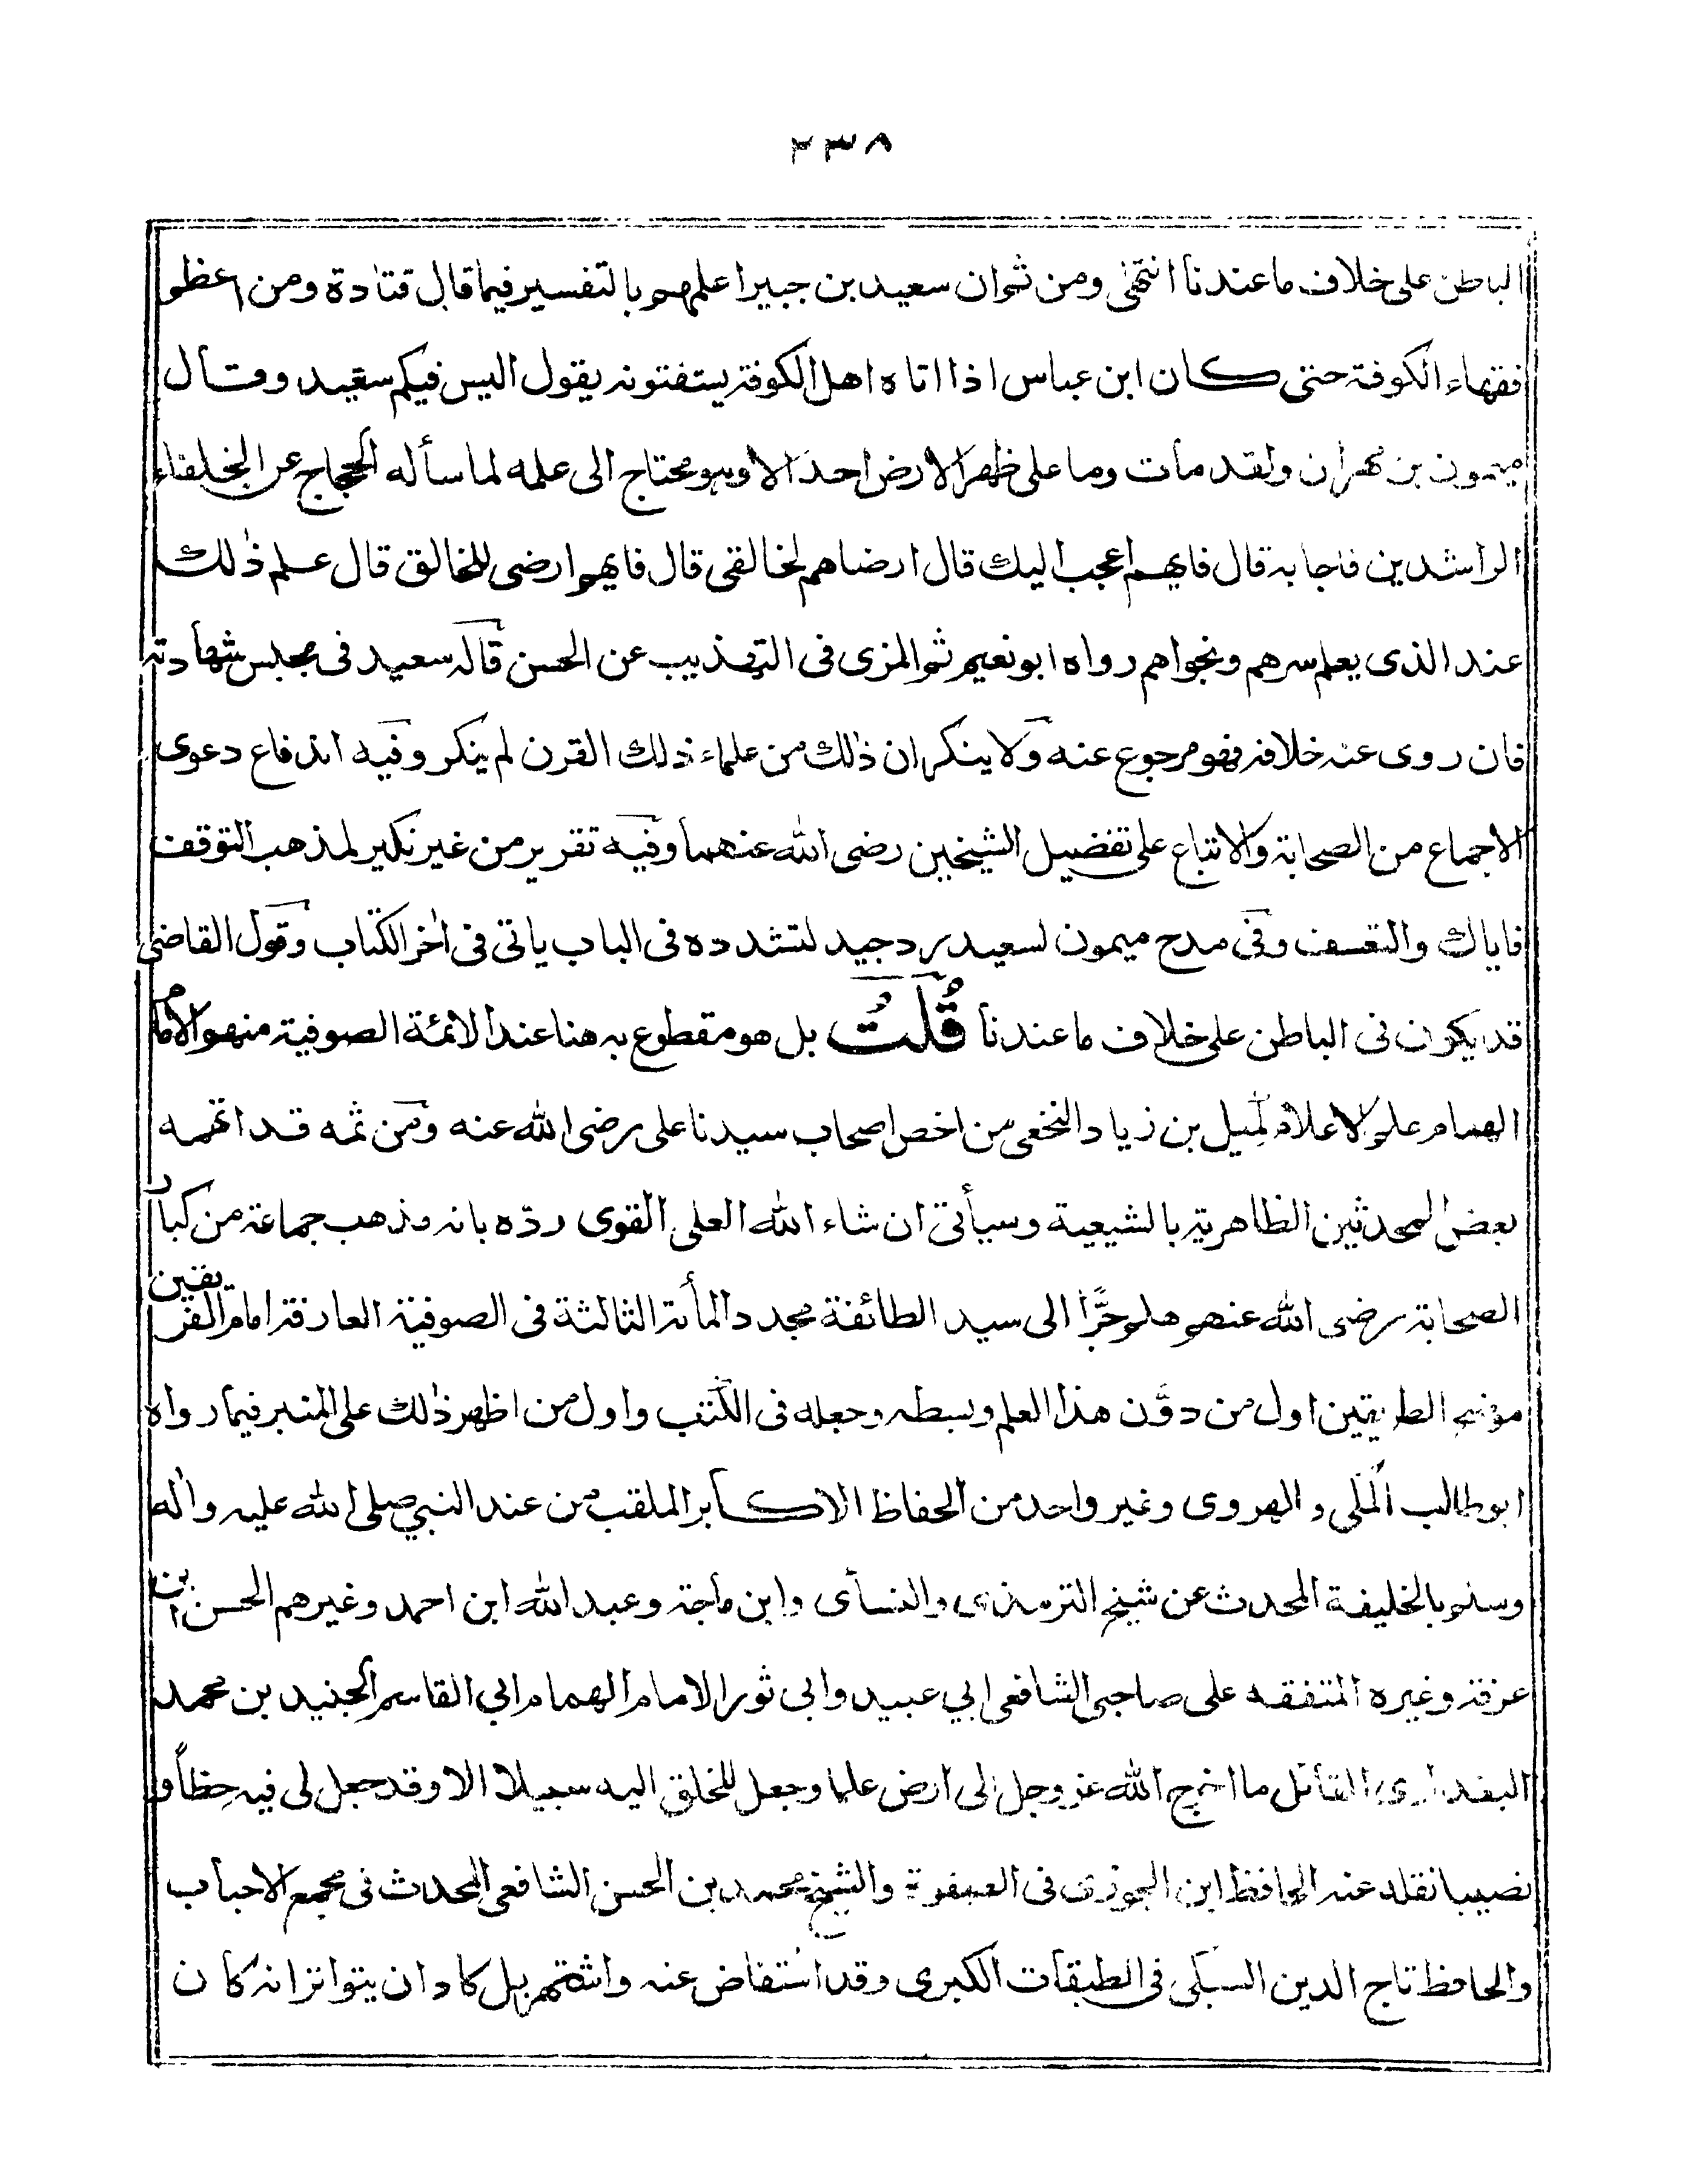 ٢٣٨
الباطن على خلاف ما عندنا انتهى ومن ثم ان سعيد بن جبير اعلمهم بالتفسير فيما قال قتادة ومن اعظم
فقهاء الكوفة حتى كان ابن عباس اذا اتاه اهل الكوفة يستفتونه يقول اليس فيكم سعيد وقال
ميمون بن مهران ولقد مات وما على ظهر الارض احد الا وهو محتاج الى علمه لما سأله الحجاج عن الخلفاء
الراشدين فاجابه قال فايهم اعجب اليك قال ارضاهم لخالقى قال فايهم ارضى للخالق قال علم ذلك
عند الذى يعلم سرهم ونجواهم رواه ابو نعيم ثم المزى فى التهذيب عن الحسن قاله سعيد فى مجلس شهادته
فان روى عنه خلافه فهو مرجوع عنه ولا ينكر ان ذلك من علماء ذلك القرن لم ينكر وفيه اندفاع دعوى
الاجماع من الصحابة والاتباع على تفضيل الشيخين رضى الله عنهما وفيه تقرير من غير نكير لمذهب التوقف
فاياك والتعسف وفى مدح ميمون لسعيد رد جيد لتشدده فى الباب ياتى فى اخر الكتاب وقول القاضى
قد يكون فى الباطن على خلاف ما عندنا قُلتُ بل هو مقطوع به هنا عند الائمة الصوفية منهم الامام
الهمام علم الاعلام كميل بن زياد النخعى من اخص اصحاب سيدنا على رضى الله عنه ومن ثمه قد اتهمه
بعض المحدثين الظاهرية بالشيعية وسيأتى ان شاء الله العلى القوى ردّه بانه مذهب جماعة من كبار
الصحابة رضى الله عنهم هلم جرًّا الى سيد الطائفة مجدد المأة الثالثة فى الصوفية العارفة امام الفريقين
الطريقين اول من دوَّن هذا العلم وبسطه وجعله فى الكتب واول من اظهر ذلك على المنبر فيما رواه
ابو طالب المكى و الهروى وغير واحد من الحفاظ الاكابر الملقب من عند النبي صلى الله عليه واله
وسلم بالخليفة المحدث عن شيخ الترمذى والنسأى وابن ماجة وعبد الله ابن احمد وغيرهم الحسن بن
عرفة وغيره المتفقه على صاحبى الشافعى ابي عبيد وابى ثور الامام الهمام ابي القاسم الجنيد بن محمد
البغدادى القائل ما اخرج الله عز وجل الى ارض علما وجعل للخلق اليه سبيلا الا وقد جعل لى فيه حظاً و
نصيبا نقله عنه الحافظ ابن الجوزى فى الصفوة والشيخ محمد بن الحسن الشافعى المحدث فى مجمع الاحباب
والحافظ تاج الدين السبكى فى الطبقات الكبرى وقد استفاض عنه واشتهر بل كاد ان يتواتر انه كان